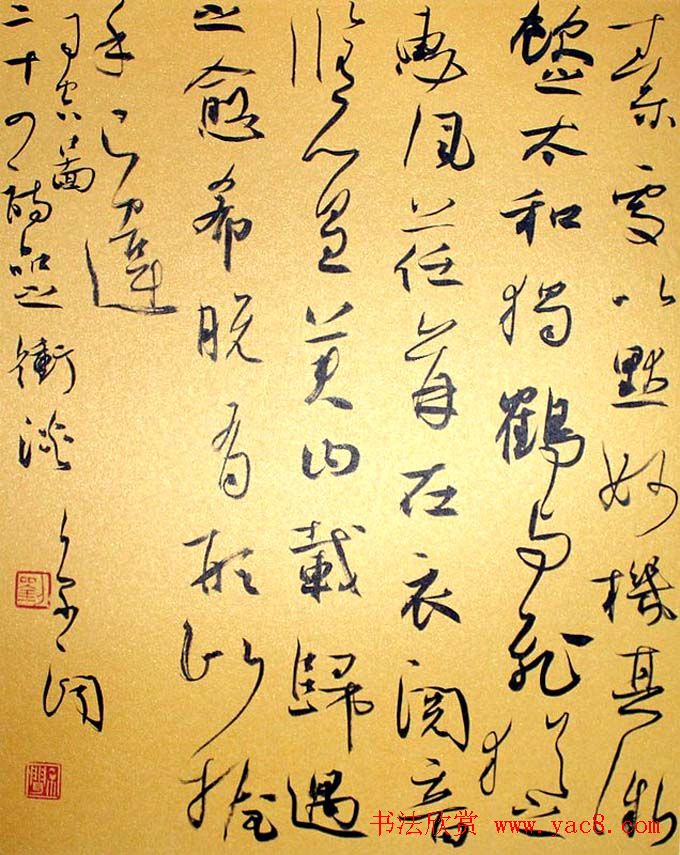 素處以默妙機其微
飲之太和獨鶴與飛猶之
惠風荏苒在衣閱音
脩篁美曰載歸遇
之愈希脫有形似握
手已違
司空圖
二十四詩品之衝淡
劉
书法欣赏 www.yac8.com